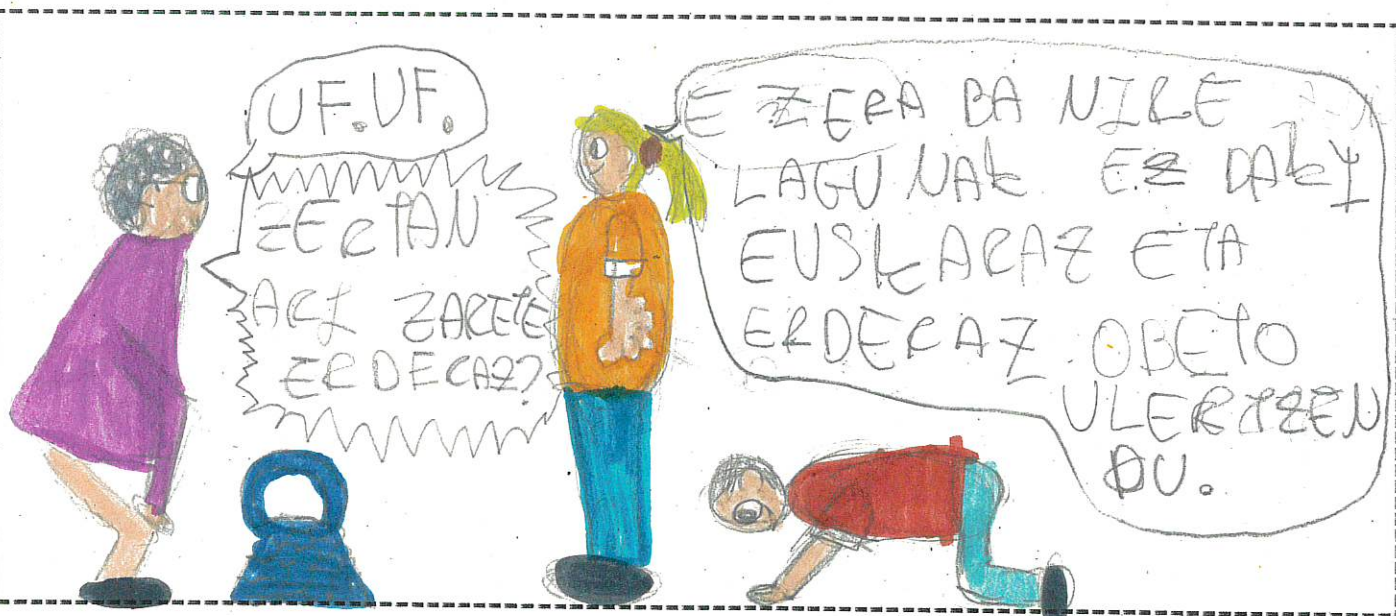 UF.UF.
ZERTAN
ARI ZARETE
ERDERAZ?
E ZERA BA NIRE
LAGUNAK EZ DAKI
EUSKARAZ ETA
ERDERAZ OBETO
ULERTZEN
DU.